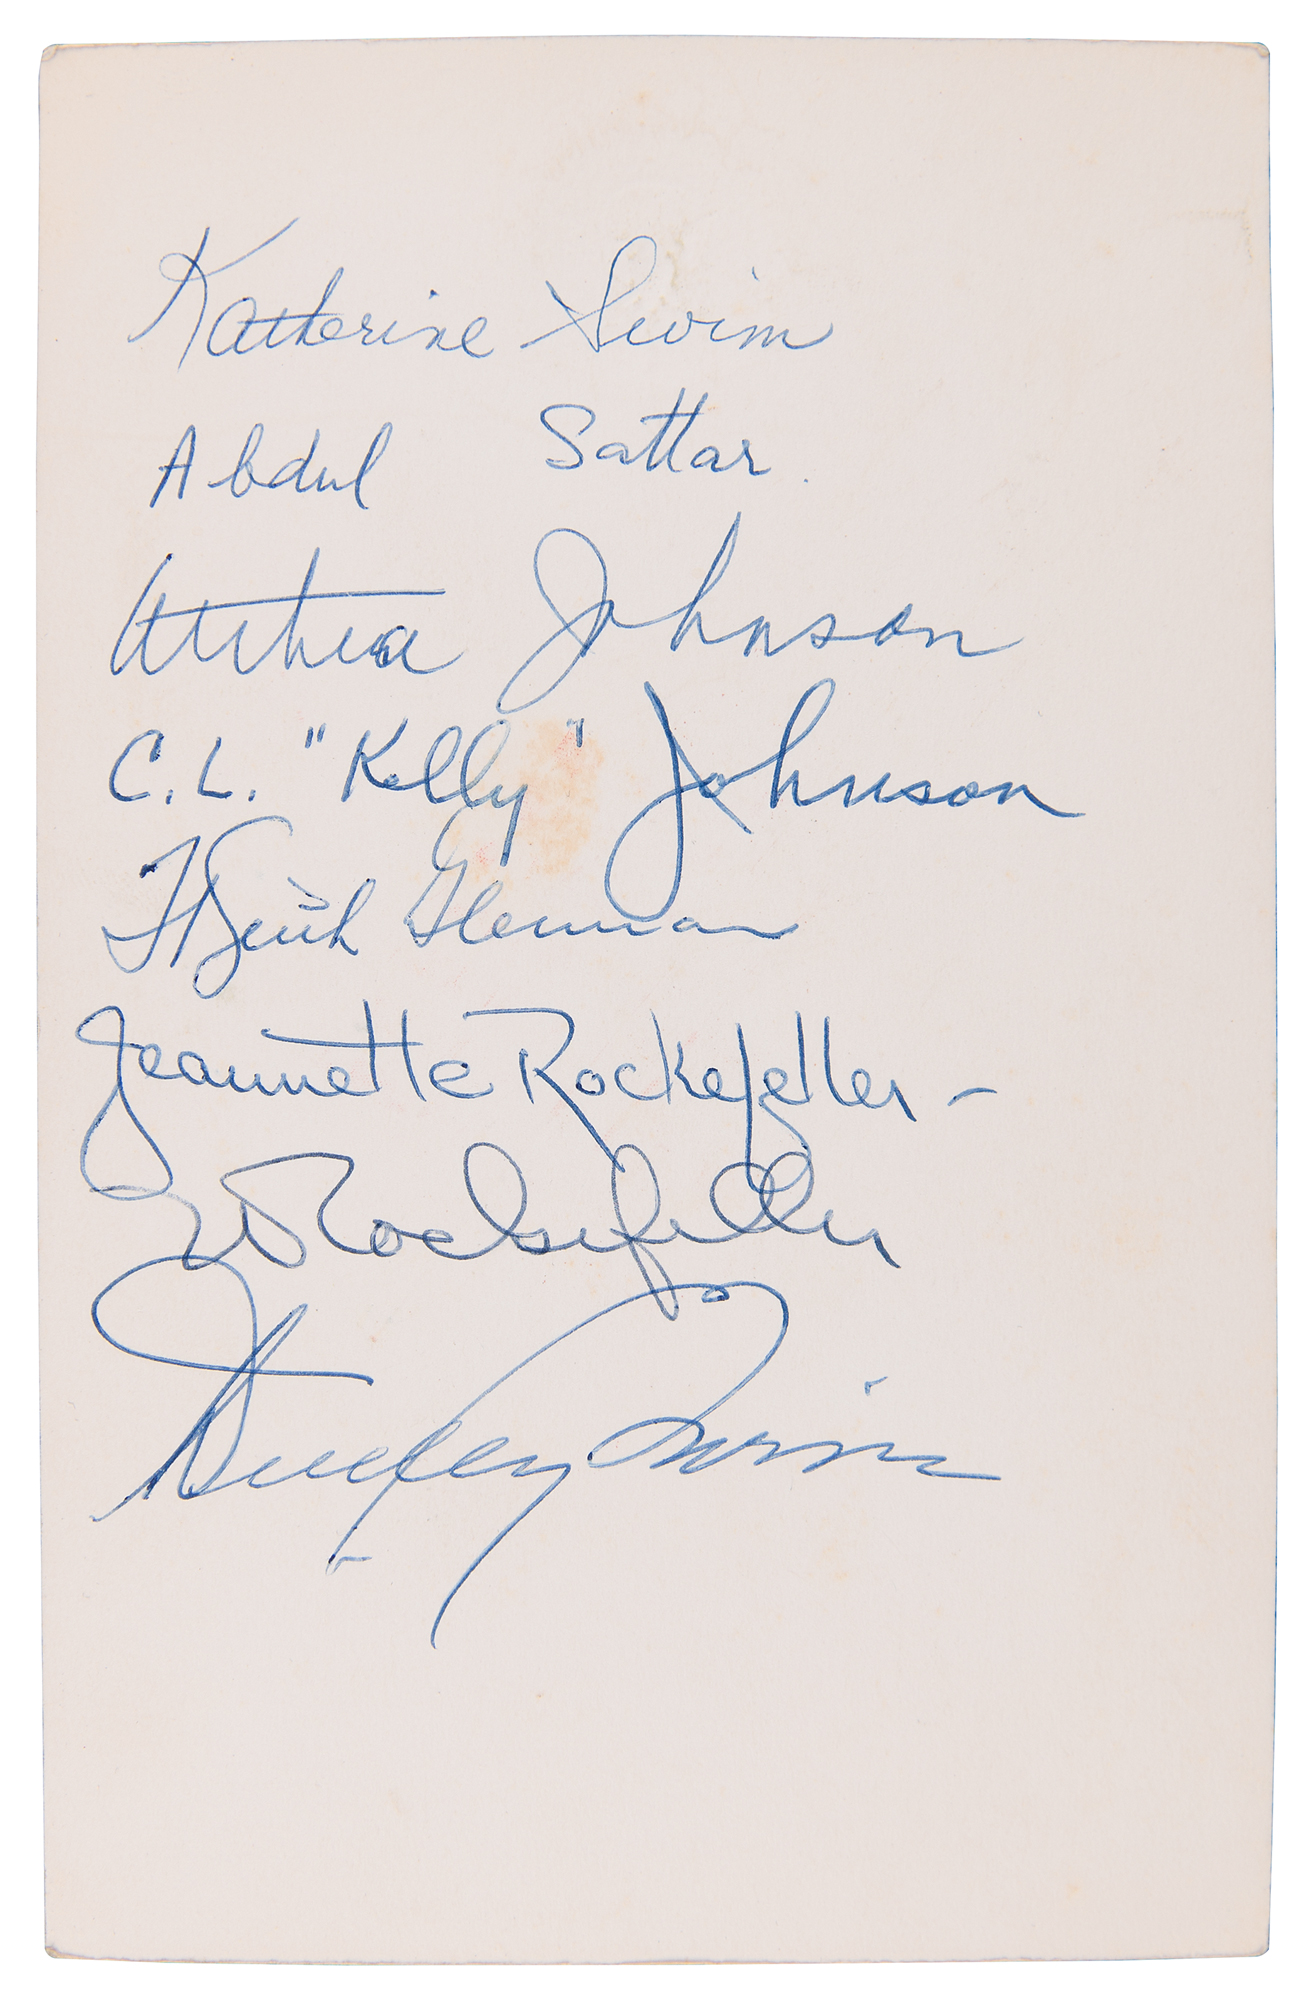 Katherine Swim
Abdul Sattar.
Althea Johnson
C.L. "Kelly" Johnson
T Keith Glennan
Jeannette Rockefeller -
W Rockefeller
Irvin